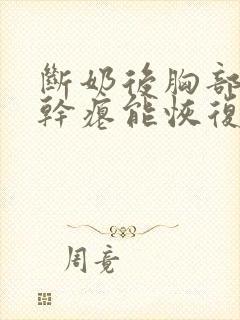 斷奶後胸部
幹癟能恢復
周竟